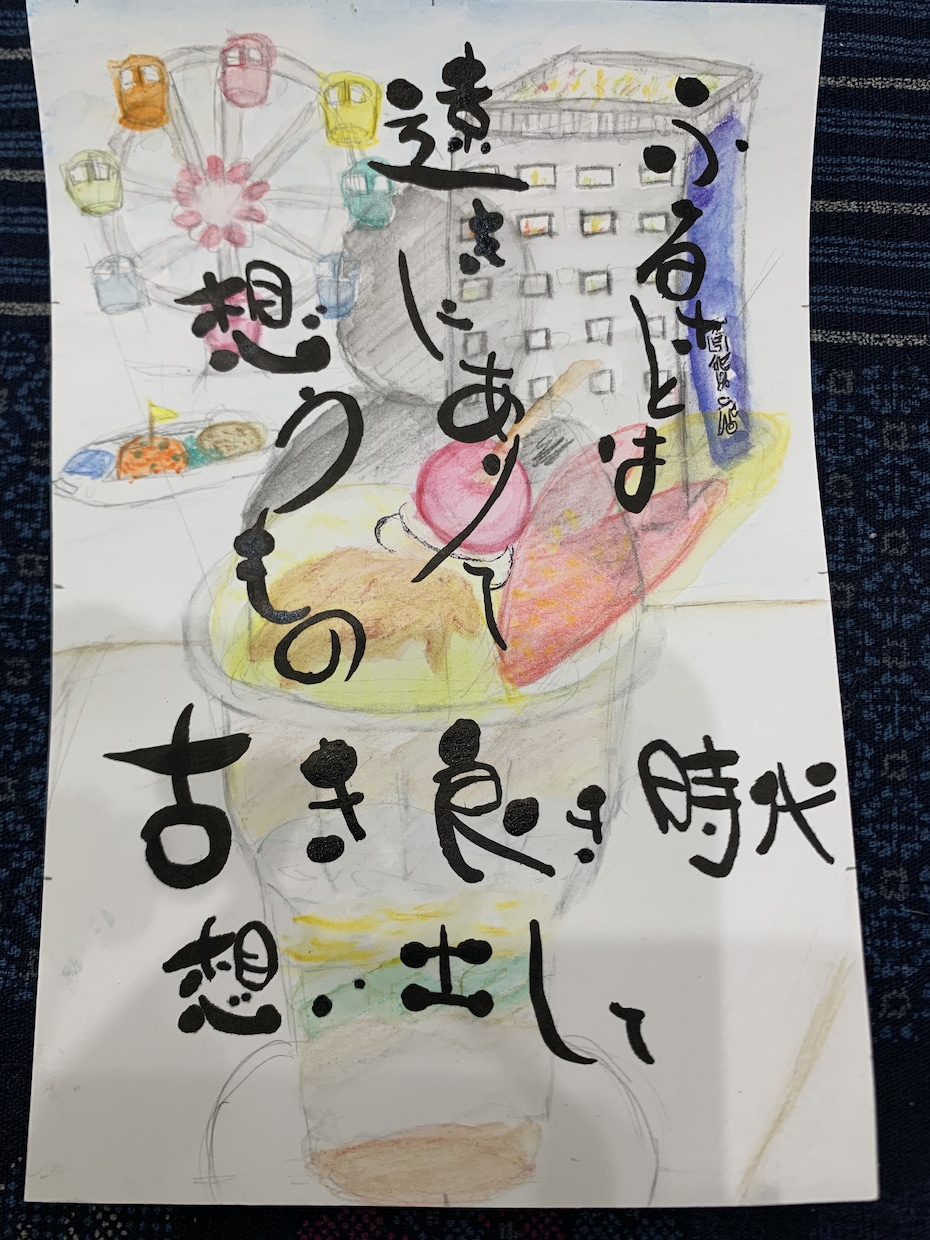 ふるさとは
遠きにありて
想うもの
古き良き時代
想い出して
百貨店